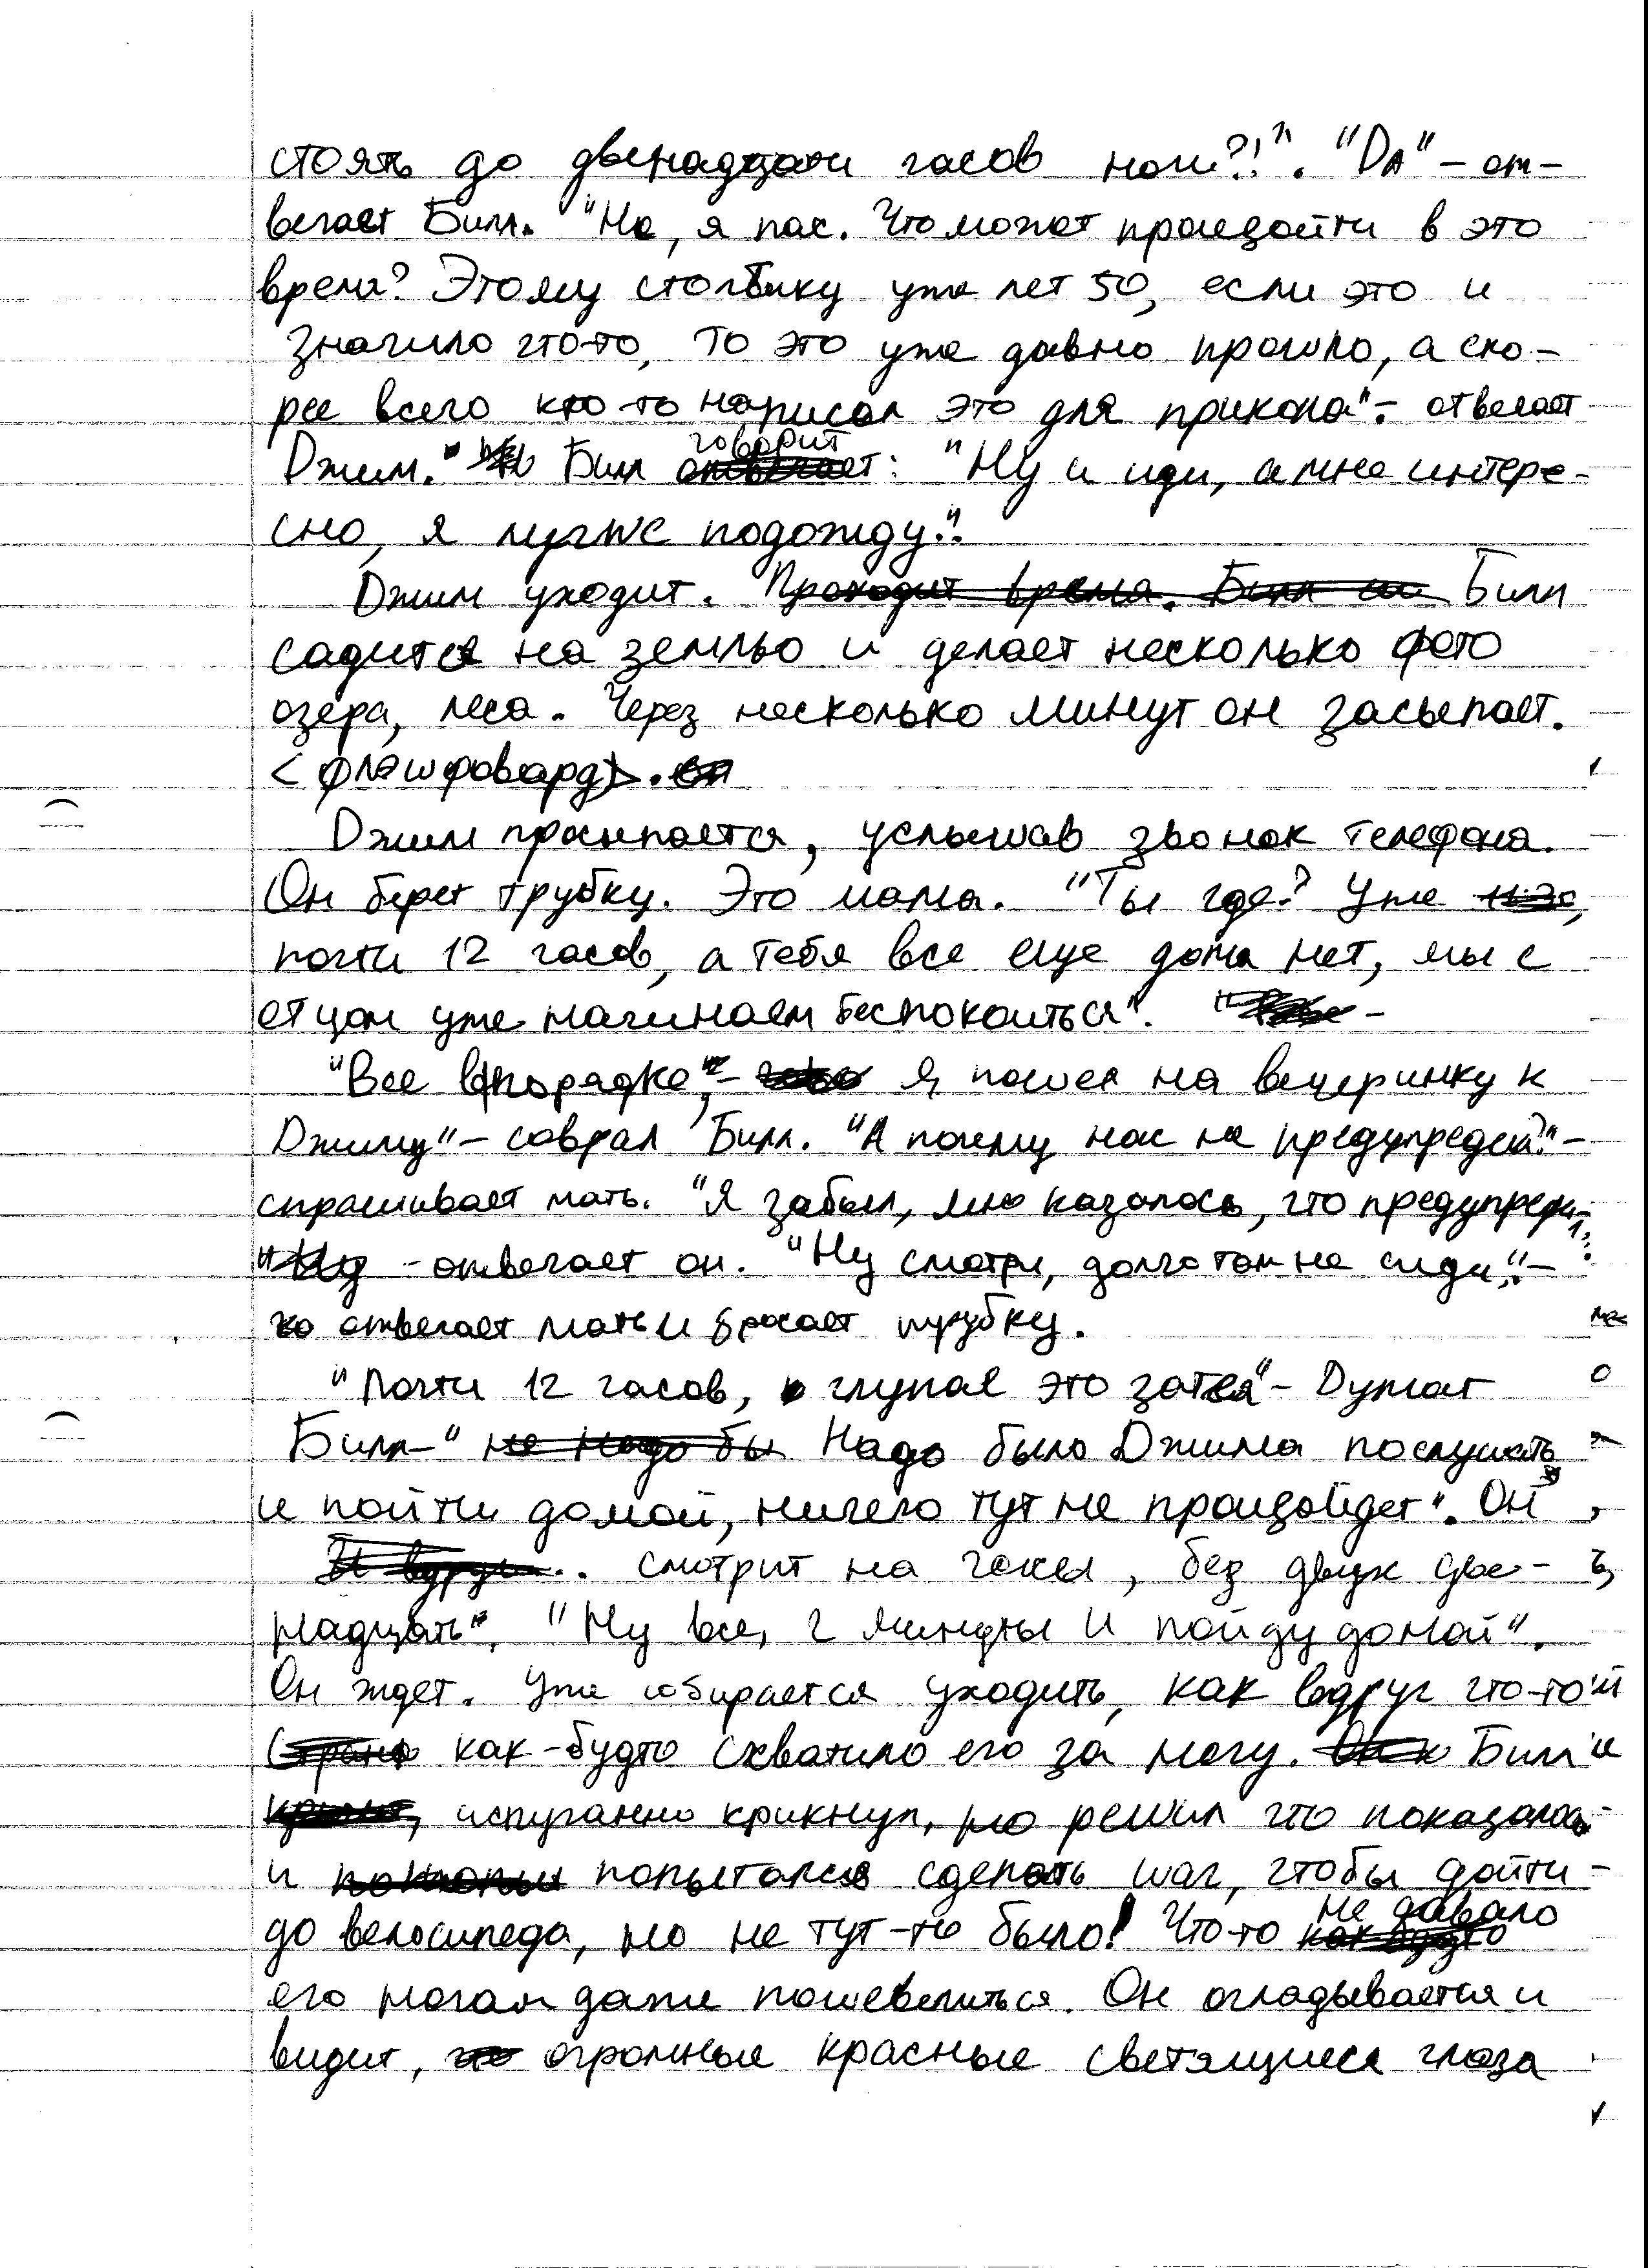 стоять до двенадцати часов ночи?!". "Да" – от-
вечает Билл. "Не, я пас. Что может произойти в это
время? Этому столбику уже лет 50, если это и
значило что-то, то это уже давно прошло, а ско-
рее всего кто-то написал это для прикола" - отвечает
Джим. Билл говорит: "Ну и иди, а мне интере-
сно, я лучше подожду".
Джим уходит. Проходит время. Билл Билл
садится на землю и делает несколько фото
озера, леса. Через несколько минут он засыпает.
<флэшфовард>.
Джим просыпается, услышав звонок телефона.
Он берет трубку. Это мама. "Ты где? Уже
почти 12 часов, а тебя все еще дома нет, мы с
отцом уже начинаем беспокоиться".
"Все в порядке, – я пошел на вечеринку к
Джиму" – соврал Билл. "А почему нас не предупредил?" –
спрашивает мать. "Я забыл, мне казалось, что предупредил",
- отвечает он. "Ну смотри, долго там не сиди". –
отвечает мать и бросает трубку.
"Почти 12 часов, глупая это затея" – Думает
Билл – " не надо бы Надо было Джима послушать
и пойти домой, ничего тут не произойдет". Он
И вдруг.. смотрит на часы, без двух две-
надцать. "Ну все, 2 минуты и пойду домой".
Он ждет. Уже собирается уходить, как вдруг что-то
как-будто схватило его за ногу. Билл
испуганно крикнул, но решил что показалось
и попытался сделать шаг, чтобы дойти
до велосипеда, но не тут-то было! Что-то не давало
его ногам даже пошевелиться. Он оглядывается и
видит, что огромные красные светящиеся глаза